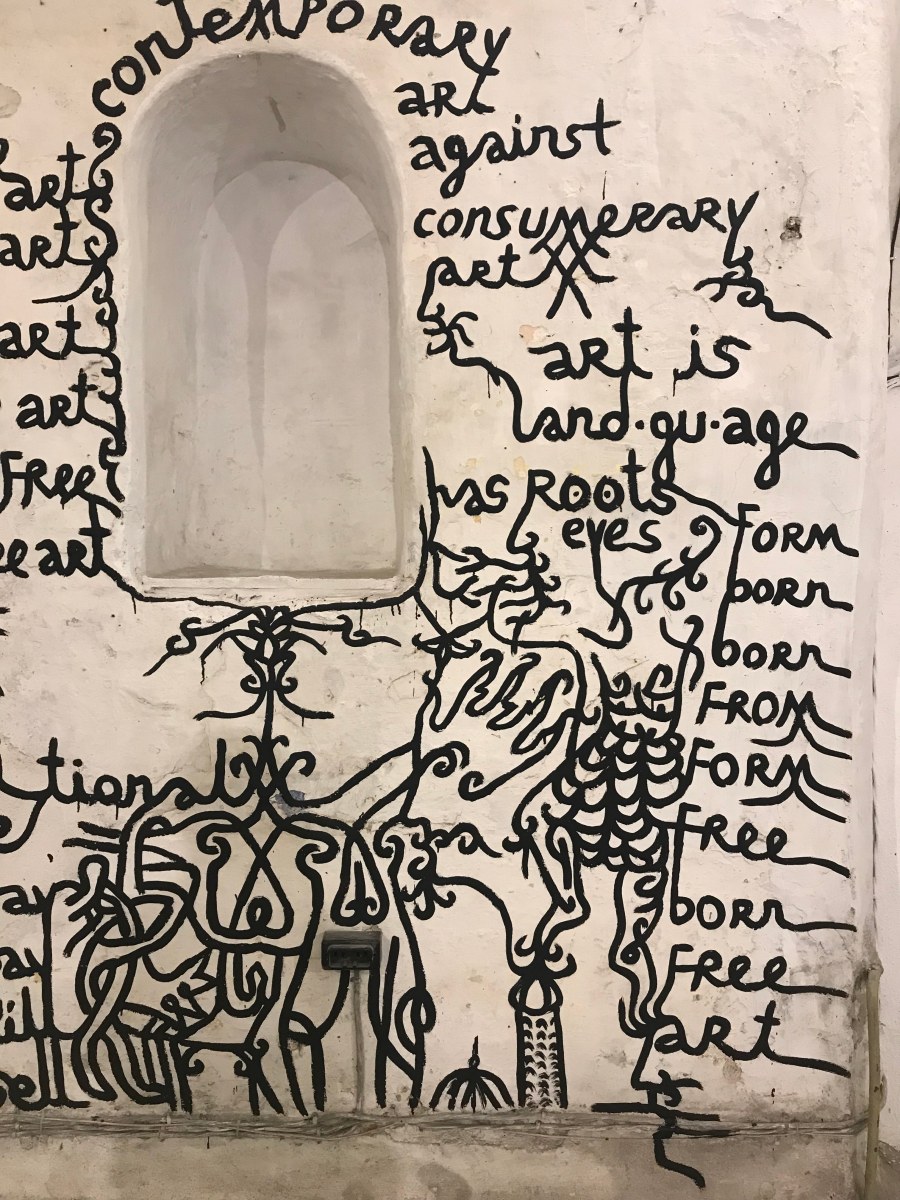 contemporary
art
against
consumerary
art
art is
land·gu·age
has Roots
eyes
art
arts
art
art
Free
art
tional
FORM
born
born
FROM
FORM
Free
born
Free
art
is